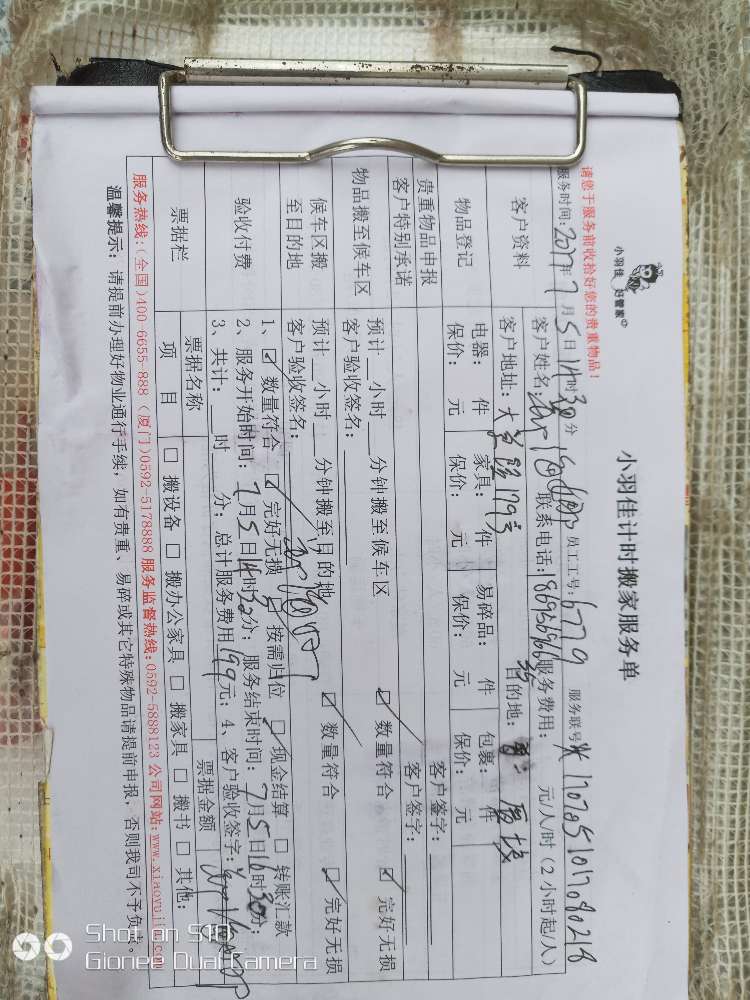 小羽佳
好管家
小羽佳计时搬家服务单
请您于服务前收拾好您的贵重物品！
服务时间：2017年7月5日14时30分 员工工号：6779 服务联号
客户资料 客户姓名： 联系电话： 服务费用： 元/人/时（2小时起/人）
客户地址： 目的地：
物品登记 电器： 件 家具： 件 易碎品： 件 包裹： 件
保价： 元 保价： 元 保价： 元 保价： 元
贵重物品申报 客户签字：
客户特别承诺 客户签字：
物品搬至候车区 预计 小时 分钟搬至候车区 ☑ 数量符合 ☑ 完好无损
客户验收签名：
候车区搬至目的地 预计 小时 分钟搬至目的地 ☑ 数量符合 ☑ 完好无损
客户验收签名：
验收付费 1、☑ 数量符合 ☑ 完好无损 ☑ 按需归位 ☑ 现金结算 □ 转账汇款
2、服务开始时间：7月5日14时30分；服务结束时间：7月5日16时30分；
3、共计： 时 分；总计服务费用199元；4、客户验收签字：
票据栏 票据名称 票据金额
项目 □ 搬设备 □ 搬办公家具 □ 搬家具 □ 搬书 □ 其他：
服务热线：(全国)400-6655-888 (厦门)0592-5178888 服务监督热线：0592-5888123 公司网站：www.xiaoyujia.com
温馨提示：请提前办理好物业通行手续，如有贵重、易碎或其它特殊物品请提前申报，否则我司不予负责。
Shot on S10
Gionee Dual Camera